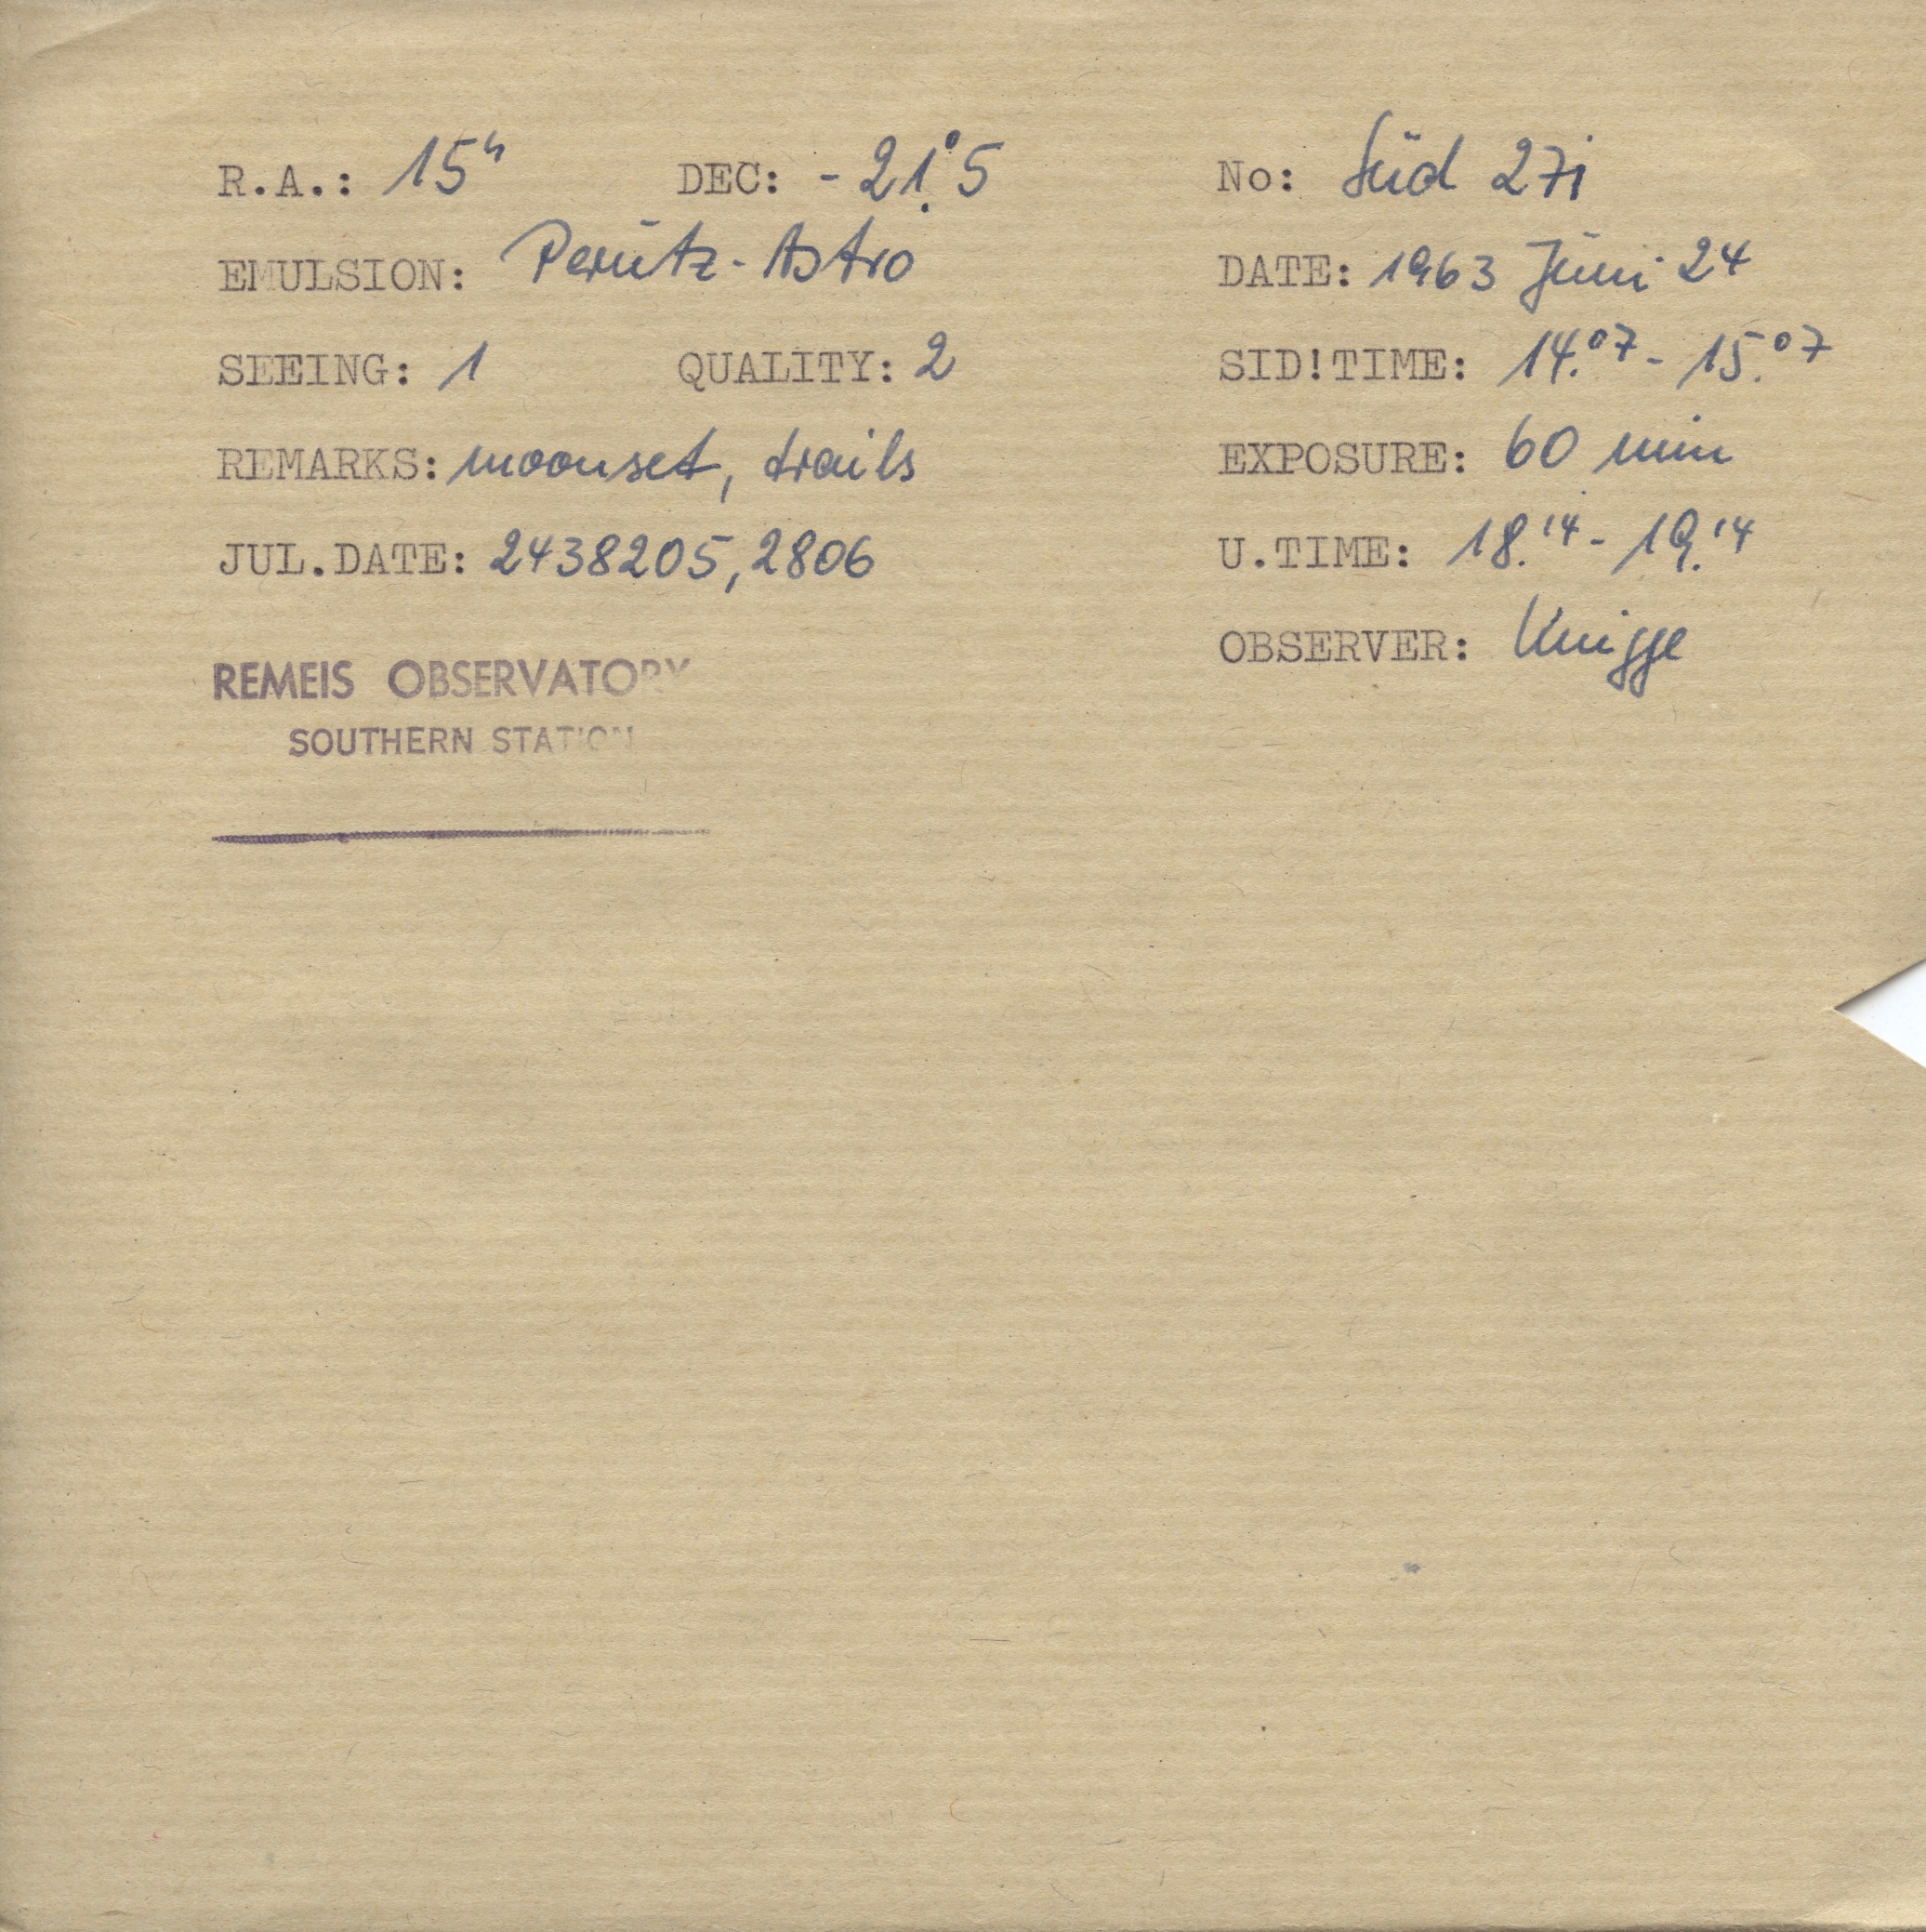 R.A.: 15ʰ DEC: -21°.5 No: Süd 27i
EMULSION: Perutz-Astro DATE: 1963 Juni 24
SEEING: 1 QUALITY: 2 SID!TIME: 14.07 - 15.07
REMARKS: moonset, trails EXPOSURE: 60 min
JUL.DATE: 2438205,2806 U.TIME: 18.14 - 19.14
OBSERVER: Knigge
REMEIS OBSERVATORY
SOUTHERN STATION